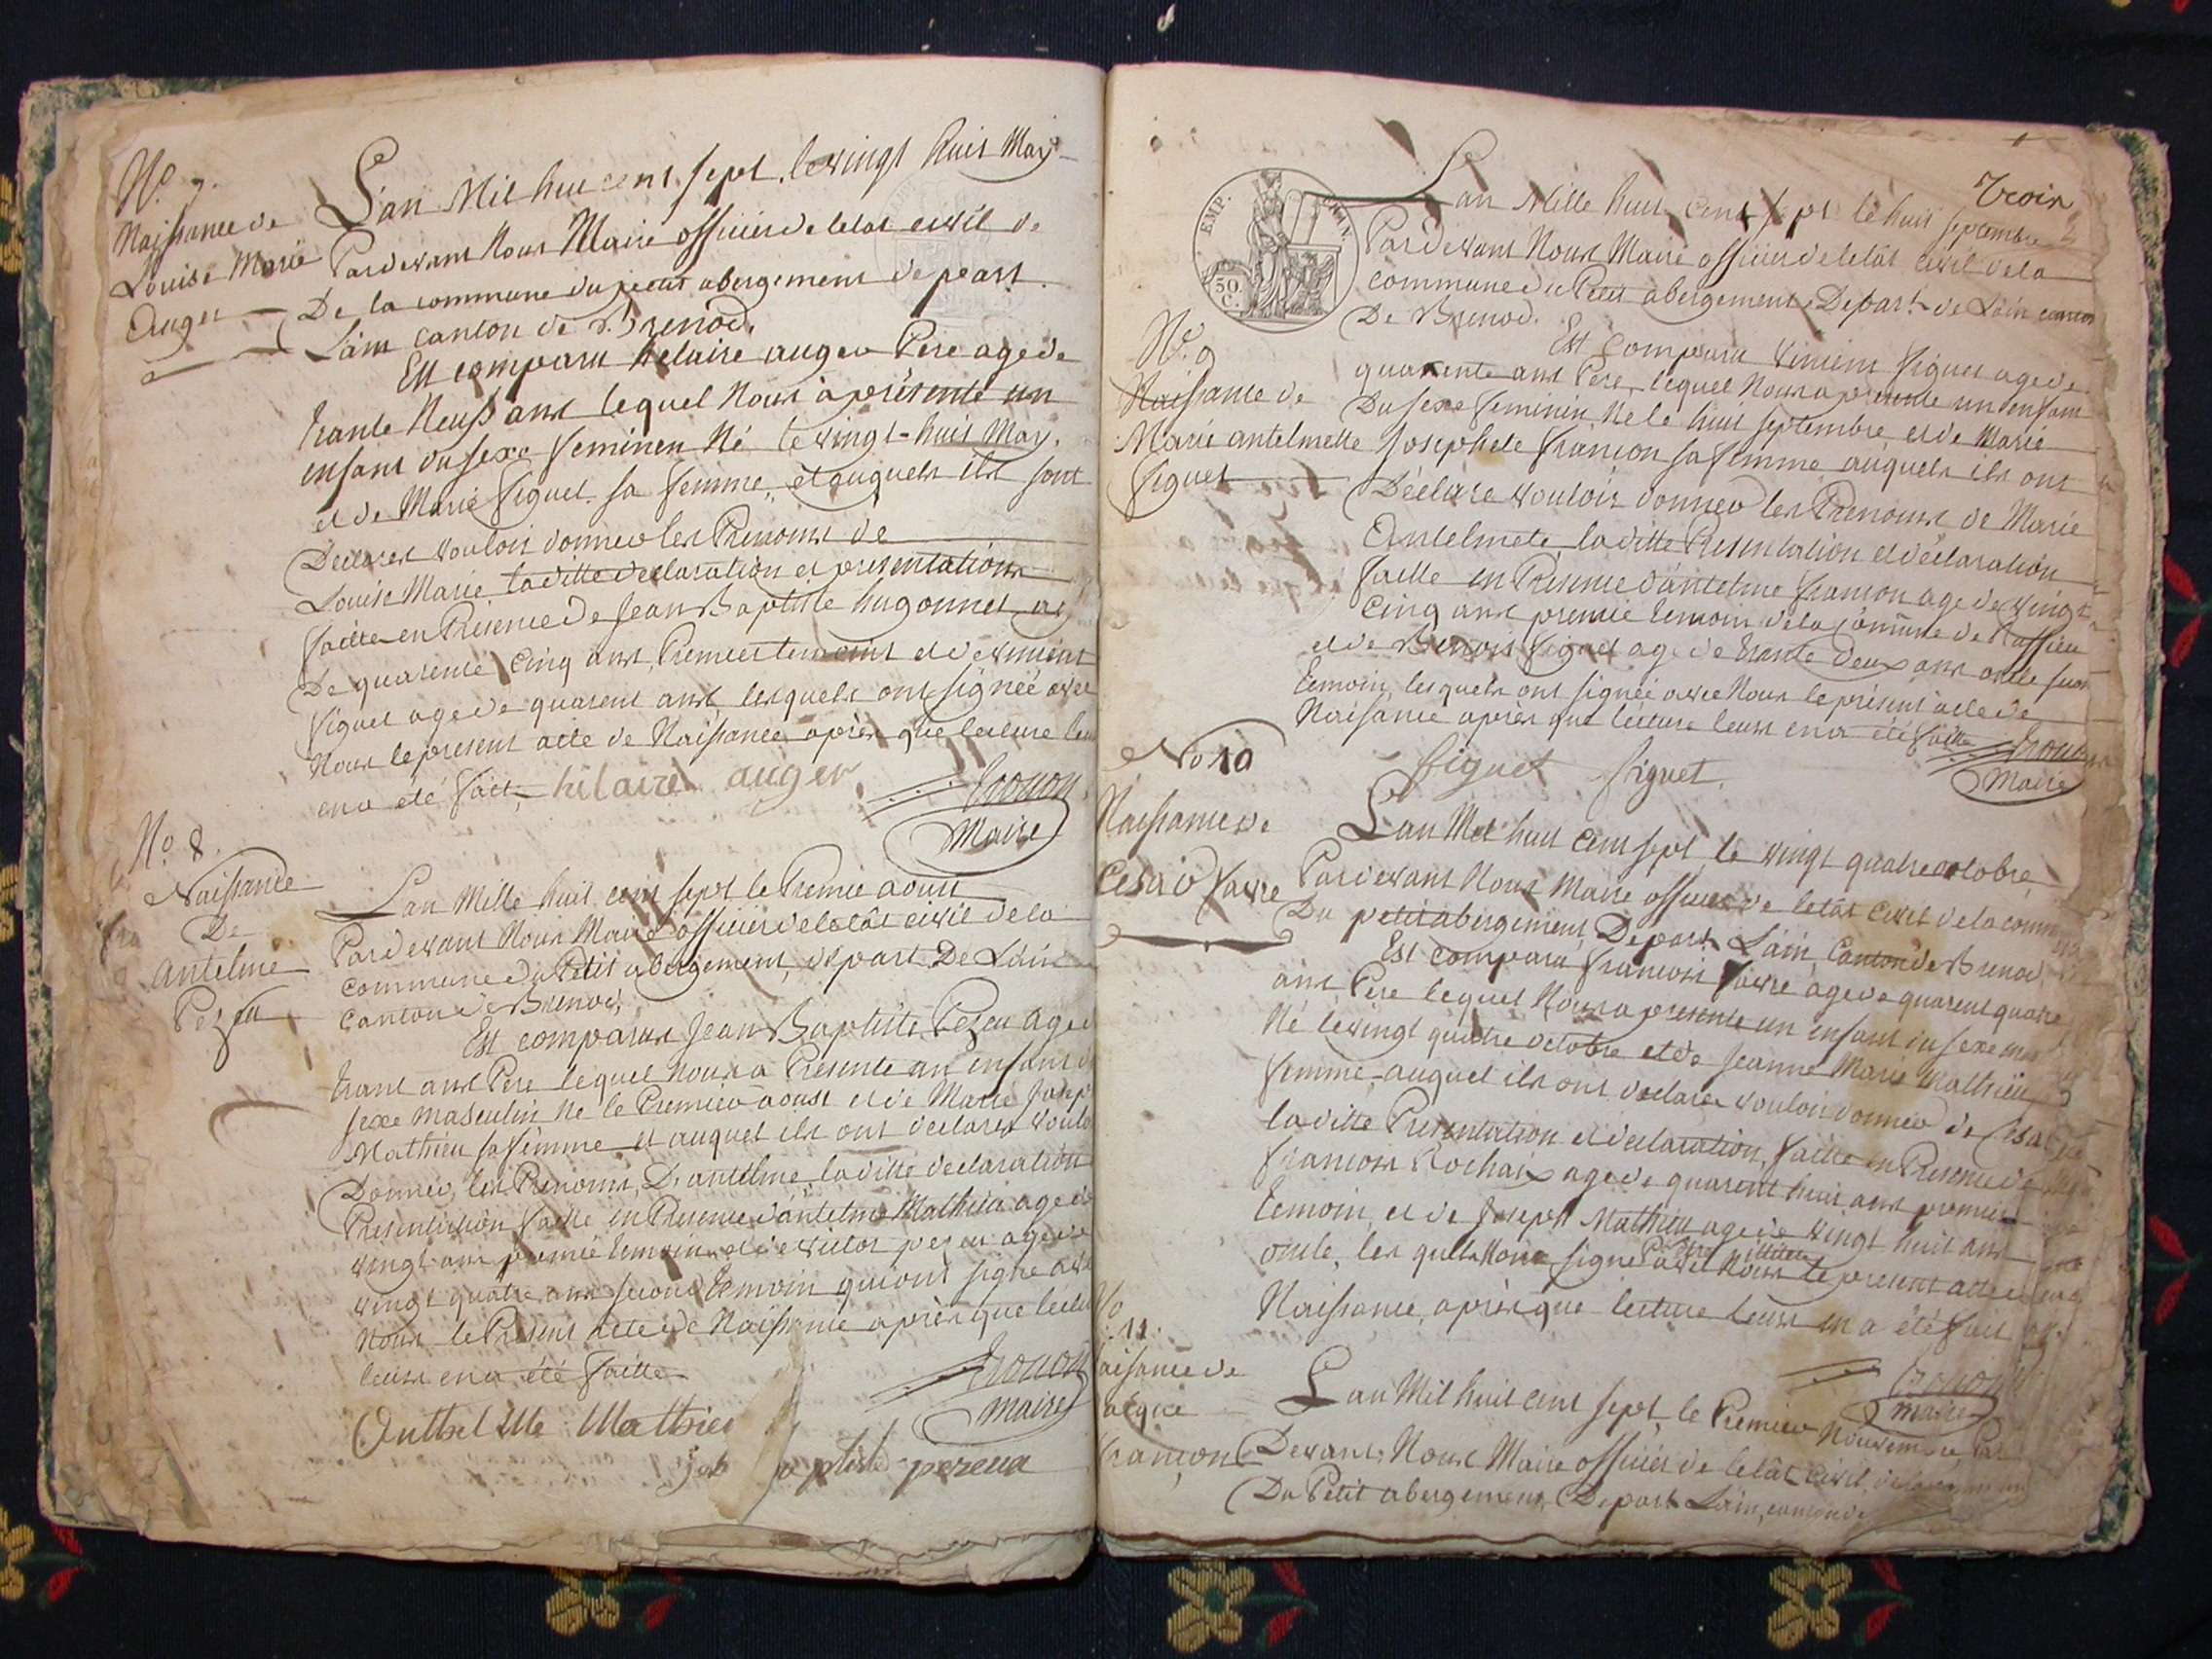 N.º 7.
Naissance de
Louise Marie
Auger
L'an Mil huit cent sept, le vingt huit May
Pardevant Nous Maire officier de letat civil de
De la commune du petit abergement depart.
Lain canton de Brenod.
Est comparu helaire auger Pere age de
trante Neuf ans lequel Nous à présenté un
enfant du sexe feminen Né le vingt-huit May.
et de Marie figuet sa femme, et auquels ils sont
Declarer vouloir donner les Prenoms de
Louise Marie la ditte declaration et presentations
faitte en Presence De Jean Baptiste hugonnet ag
De quarente cinq ans, Premier temoins et de vinient
figuet age de quarent ans, lesquels ont signéé avec
Nous le present acte de Naissance après que lecture leur
en a eté fait, hilaire auger
Maire
N.º 8.
Naissance
De
antelme
Pezeu
Lan Mille huit cent sept le Premie aoust
Pardevant Nous Maire officier de letât civil de la
Commune du Petit abergement, depart De Lain
Canton de Brenod,
Est comparus Jean Baptiste Pezeu age d
trant ans Pere lequel Nous a Presente un enfant d
sexe masculin ne le Premier aoust et de Marie Josep
Mathieu sa femme et auquel ils ont declarer voulo
Donner les Prenoms, D'antelme la ditte declaration
Presentation faitte en Presence d'antelme Mathieu age de
vingt ans premié temoin et de victor pezeu age de
vingt quatre ans second temoin qui ont signe avec
Nous le Present acte de Naissance après que lectu
leurs en a été faitte
Maire
Anthelme Mathieu
baptiste pezeua
Troix
EMP.
50.
C.
Lan Mille huit cent sept le huit septembre
Pardevant Nous Maire officier de letât civil de la
commune du Petit abergement Depart. de Lain canton
De Brenod.
N.º 9
Naissance de
Marie antelmette
figuet
Est Comparu vinient figuet age de
quarente ans Pere, lequel Nous a presente un enfant
Du sexe feminin, Ne le huit septembre, et de Marie
Josephete françon sa femme auquels ils ont
Déclàre vouloir donner les Prenoms de Marie
Antelmete la ditte Presentation et déclaration
faitte en Presence d'antelme françon age de vingt
Cinq ans premie temoin de la commune de Ruffieu
et de Benoit figuet age de trante deux ans oncle
temoin, lesquels ont signéé avec Nous le présent acte de
Naisance après que lécture leurs en a été faitte
figuet figuet
Maire
No 10
Naissance de
Cesard favre
Lan Mil huit cent sept le vingt quatre octobre
Pardevant Nous Maire officier de letât civil de la comm
Du petit abergement Depart. Lain, Canton de Brenod,
Est comparu françois favre age de quarent quatre
ans Pere lequel Nous a presente un enfant du sexe mas
Né le vingt quatre octobre et de Jeanne Marie Mathieu
femme, auquel ils ont declarer vouloir donner de Cesar
la ditte Presentation et declaration, faitte en Presence de
francois Rochaix age de quarent huit ans premier
temoin, et de Joseph Mathieu age de vingt huit ans
oncle, les quels signe avec Nous le present acte de
Naissance, après que lecture leurs en a été fait
Maire
No
11.
aisance de
françon
Lan Mil huit cent sept le Premier Novembre, Par
Devant Nous Maire officier de letât Civil
Du Petit abergement Depart Lain, canton de